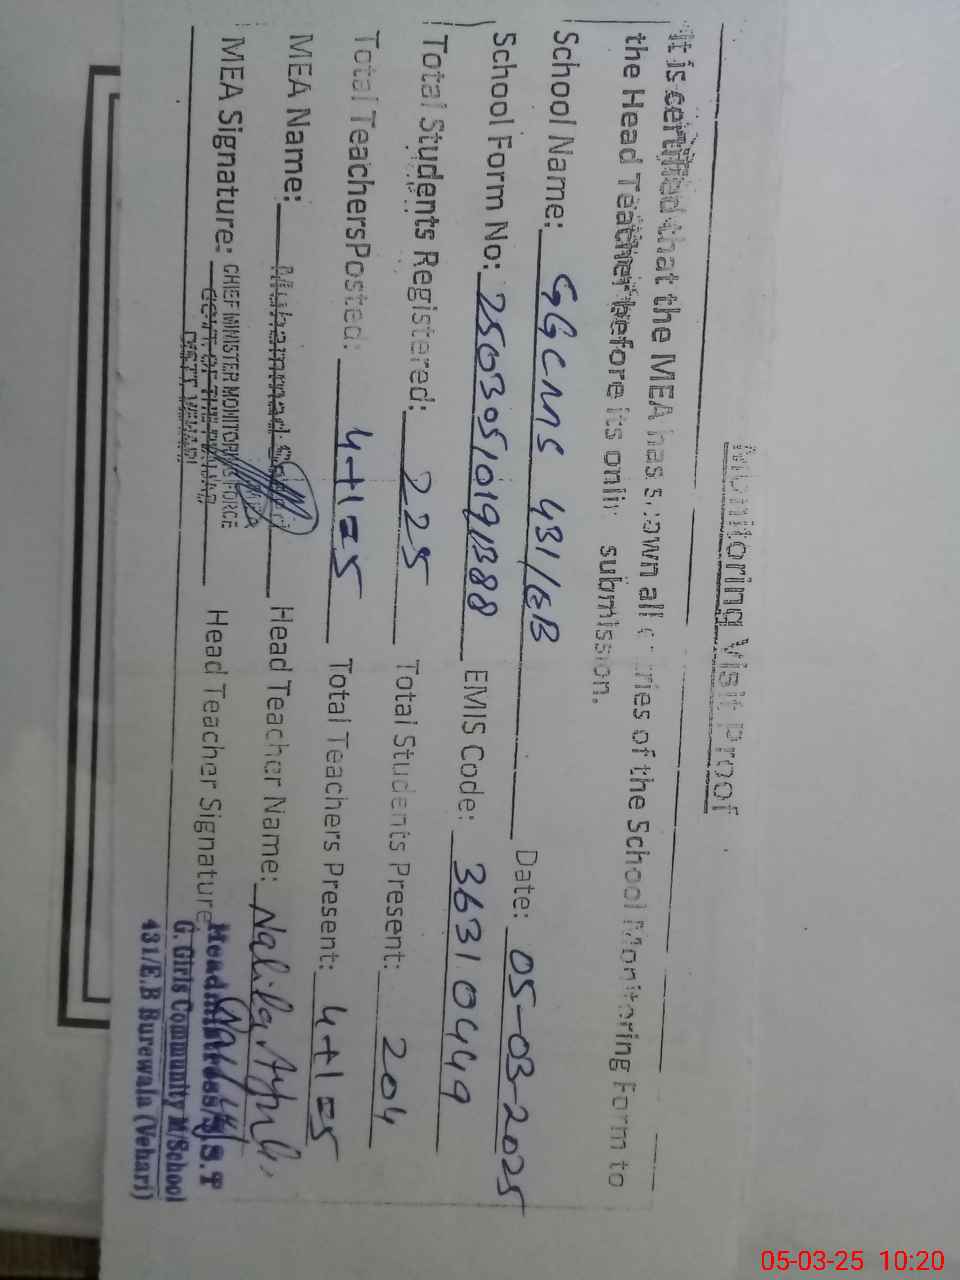 Monitoring Visit Proof
It is certified that the MEA has shown all entries of the School Monitoring Form to
the Head Teacher before its online submission.
School Name: GGCMS 431/EB Date: 05-03-2025
School Form No: 25030510191388 EMIS Code: 36310449
Total Students Registered: 225 Total Students Present: 204
Total Teachers Posted: 4+1=5 Total Teachers Present: 4+1=5
MEA Name: Muhammad Head Teacher Name:
MEA Signature: Head Teacher Signature
MEA
CHIEF MINISTER MONITORING FORCE
GOVT OF THE PUNJAB
DISTT VEHARI
Headmistress/S.S.T
G. Girls Community M/School
431/E.B Burewala (Vehari)
05-03-25 10:20